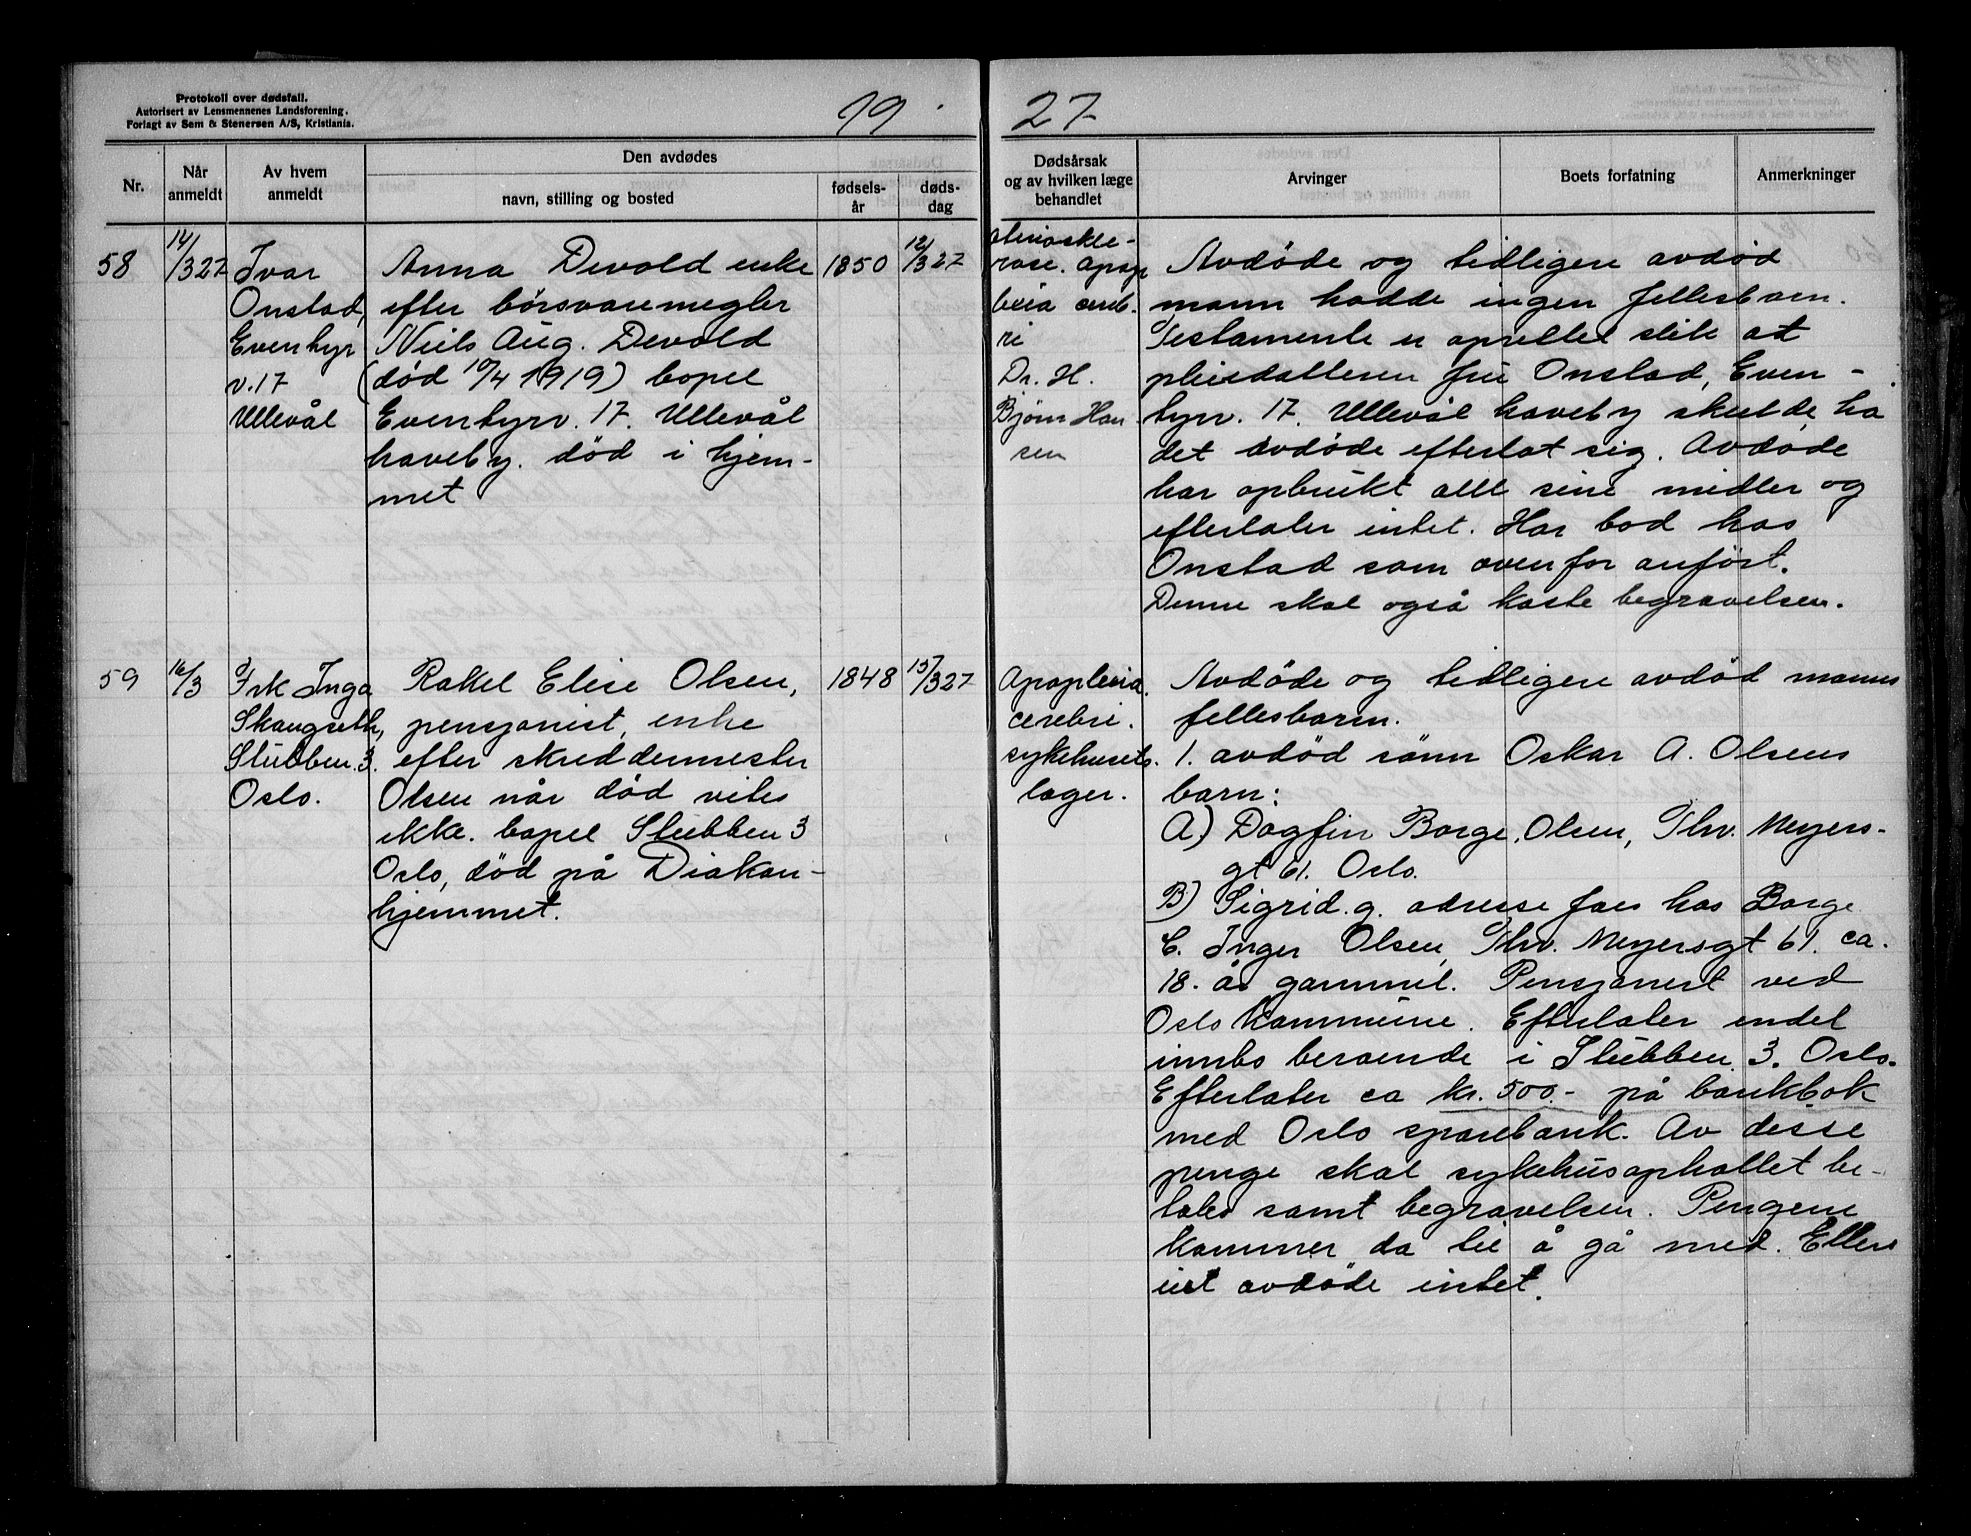 Protokoll over dødsfall.
Autorisert av Lensmennenes Landsforening.
Forlagt av Sem & Stenersen A/S, Kristiania.
19 27
Nr.
Når anmeldt
Av hvem anmeldt
Den avdødes
navn, stilling og bosted
fødsels-år
døds-dag
Dødsårsak
og av hvilken læge
behandlet
Arvinger
Boets forfatning
Anmerkninger
58
14/3 27
Ivar
Onstad,
Eventyr
v. 17
Ullevål
Anna Devold enke
efter børsvaremegler
Niels Aug. Devold
(død 10/4 1919) bopel
Eventyrv. 17. Ullevål
haveby. død i hjem-
met
1850
12/3 27
rose. apop
lexia cereb.
ri
Dr. H.
Bjørn Han
sen
Avdøde og tidligere avdød
mann hadde ingen fellesbarn.
Testamente er oprettet slik at
pleiedatteren fru Onstad, Even-
tyrv. 17. Ullevål haveby skulde ha
det avdøde efterlot sig. Avdøde
har opbrukt alle sine midler og
efterlater intet. Har bod hos
Onstad som ovenfor anført.
Denne skal også koste begravelsen.
59
16/3
Frk Inga
Skaugseth,
Stubben. 3.
Oslo.
Rakel Elise Olsen,
pensjonist, enke
efter skreddermester
Olsen når død vites
ikke. bopel Stubben 3
Oslo, død på Diakon-
hjemmet.
1848
15/3 27
Apoplexia
cerebri.
sykehusets.
læger.
Avdøde og tidligere avdød manns
fellesbarn.
1. avdød sønn Oskar A. Olsens
barn:
A) Dagfin Borge Olsen, Thv. Meyers-
gt 61. Oslo.
B) Sigrid. g. adresse faes hos Borge
C. Inger Olsen, Thv. Meyersgt 61. ca.
18. år gammel. Pensjonert ved
Oslo kommune. Efterlater endel
innbo beroende i Stubben 3. Oslo.
Efterlater ca kr. 500.- på bankbok
med Oslo sparebank. Av desse
penge skal sykehusopholdet be-
tales samt begravelsen. Pengene
kommer da til å gå med. Ellers
eiet avdøde intet.